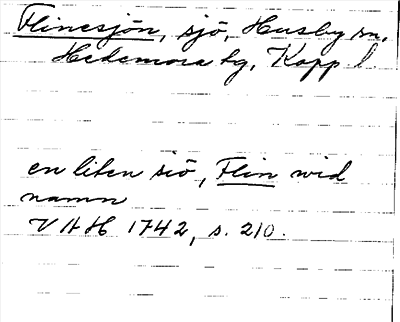 Flinesjön, sjö, Husby sn,
Hedemora tg, Kopp l.
en liten siö, Flin wid
namn
VAH 1742, s. 210.